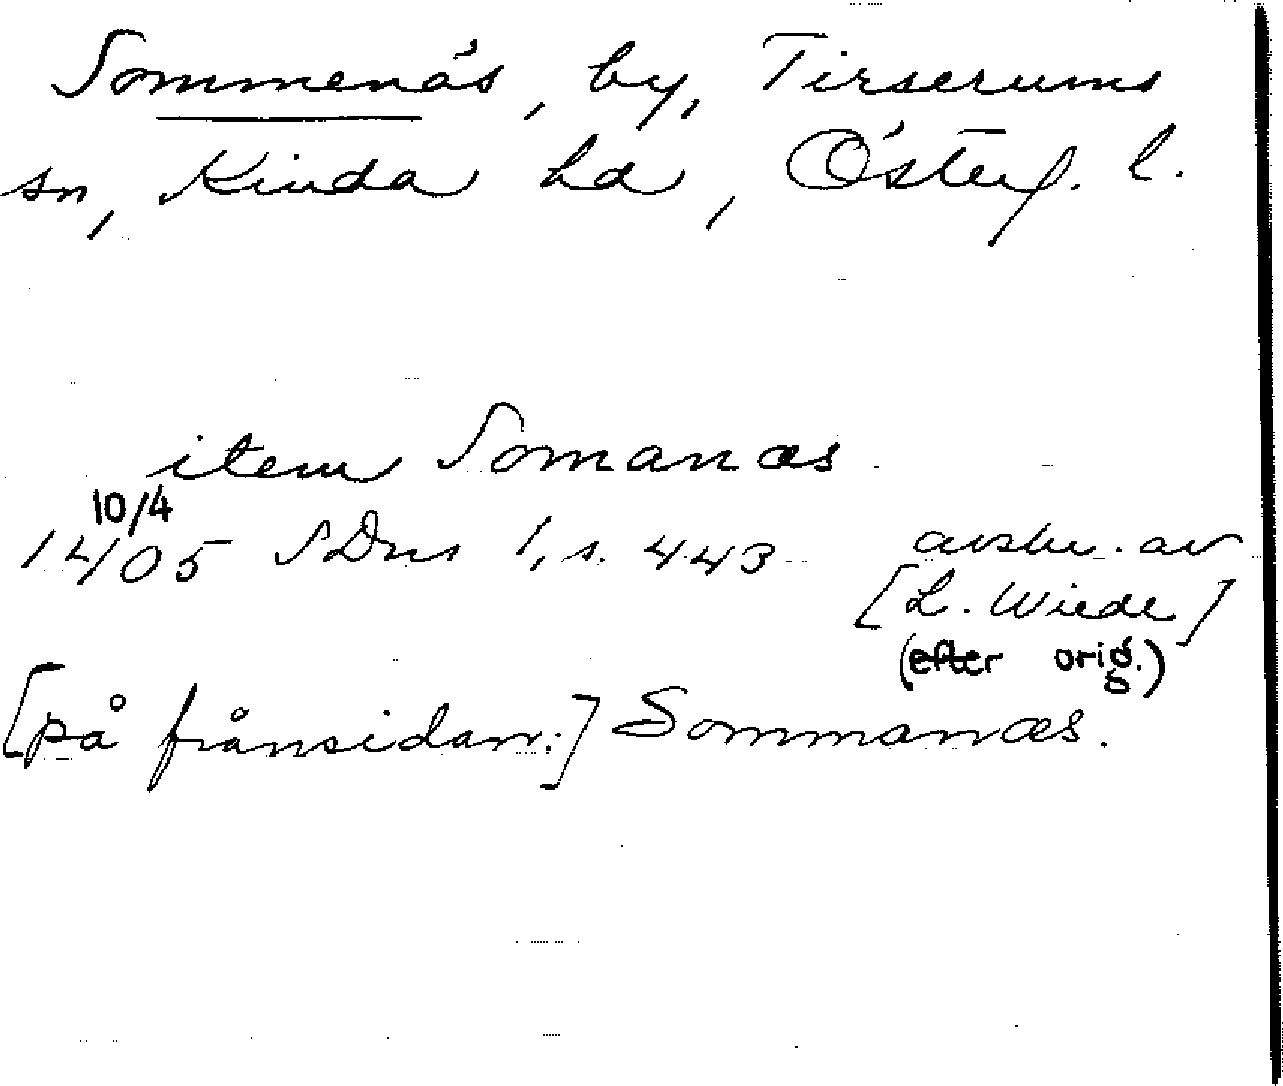 Sommenäs, by, Tirserums
sn, Kinda hd, Österg. l.
item Somanæs
10/4
1405 SDns 1, s. 443 avskr. av
[L. Wiede]
(efter orig.)
[på frånsidan:] Sommanæs.